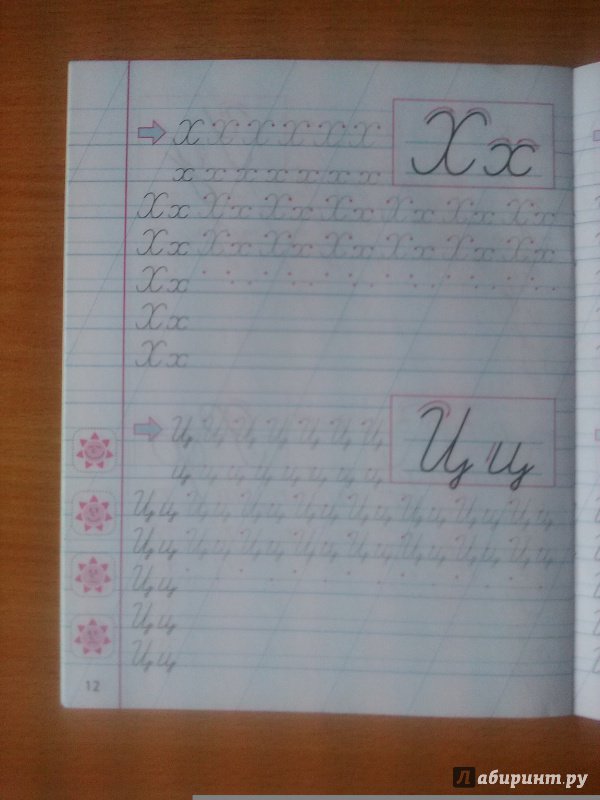 Х Х Х Х Х Х
Х х
х х х х х х х
Х х Х х Х х Х х Х х Х х Х х
Х х Х х Х х Х х Х х Х х Х х
Х х
Х х
Х х
Ц Ц Ц Ц Ц Ц Ц
Ц ц
ц ц ц ц ц ц ц ц
Ц ц Ц ц Ц ц Ц ц Ц ц Ц ц Ц ц Ц ц
Ц ц Ц ц Ц ц Ц ц Ц ц Ц ц Ц ц Ц ц
Ц ц
Ц ц
Ц ц
12
Лабиринт.ру